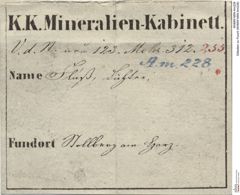 K.K. Mineralien-Kabinett.
V. d. N: 123. Mohs. 312. 255
A.m 228.
Name Fluß, Dichter.
Fundort Stollberg am Harz.